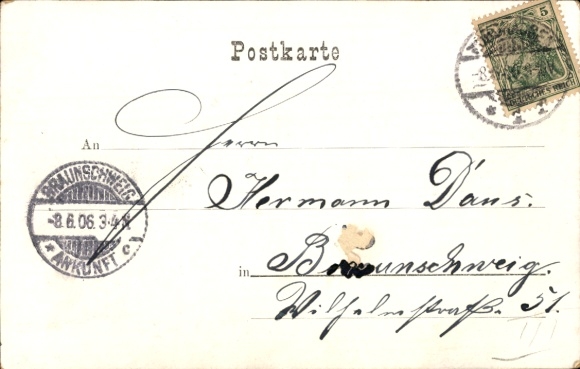 Postkarte
5
DEUTSCHES REICH
An Herrn
Hermann Daus.
in Braunschweig.
Wilhelmstraße 51.
III
BRAUNSCHWEIG
-8.6.06.3-4N
* ANKUNFT c.